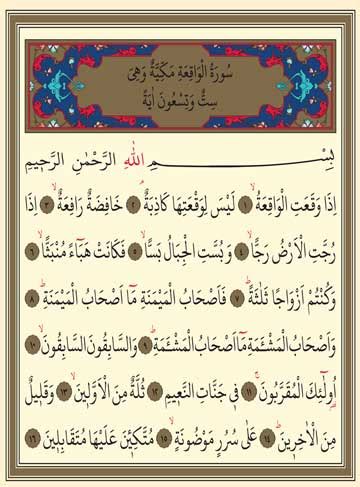 سُورَةُ الْوَاقِعَةِ مَكِّيَّةٌ وَهِيَ
سِتٌّ وَتِسْعُونَ اٰيَةً
بِسْمِ اللّٰهِ الرَّحْمٰنِ الرَّح۪يمِ
اِذَا وَقَعَتِ الْوَاقِعَةُۙ ﴿١﴾ لَيْسَ لِوَقْعَتِهَا كَاذِبَةٌۢ ﴿٢﴾ خَافِضَةٌ رَافِعَةٌۙ ﴿٣﴾ اِذَا
رُجَّتِ الْاَرْضُ رَجًّاۙ ﴿٤﴾ وَبُسَّتِ الْجِبَالُ بَسًّاۙ ﴿٥﴾ فَكَانَتْ هَبَٓاءً مُنْبَثًّاۙ ﴿٦﴾
وَكُنْتُمْ اَزْوَاجًا ثَلٰثَةًۜ ﴿٧﴾ فَاَصْحَابُ الْمَيْمَنَةِ مَٓا اَصْحَابُ الْمَيْمَنَةِۜ ﴿٨﴾
وَاَصْحَابُ الْمَشْـَٔمَةِ مَٓا اَصْحَابُ الْمَشْـَٔمَةِۜ ﴿٩﴾ وَالسَّابِقُونَ السَّابِقُونَۙ ﴿١٠﴾
اُو۬لٰٓئِكَ الْمُقَرَّبُونَۚ ﴿١١﴾ ف۪ي جَنَّاتِ النَّع۪يمِ ﴿١٢﴾ ثُلَّةٌ مِنَ الْاَوَّل۪ينَۙ ﴿١٣﴾ وَقَل۪يلٌ
مِنَ الْاٰخِر۪ينَۜ ﴿١٤﴾ عَلٰى سُرُرٍ مَوْضُونَةٍۙ ﴿١٥﴾ مُتَّكِـ۪ٔينَ عَلَيْهَا مُتَقَابِل۪ينَ ﴿١٦﴾